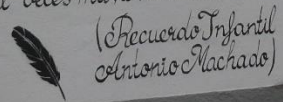 (Recuerdo Infantil
Antonio Machado)